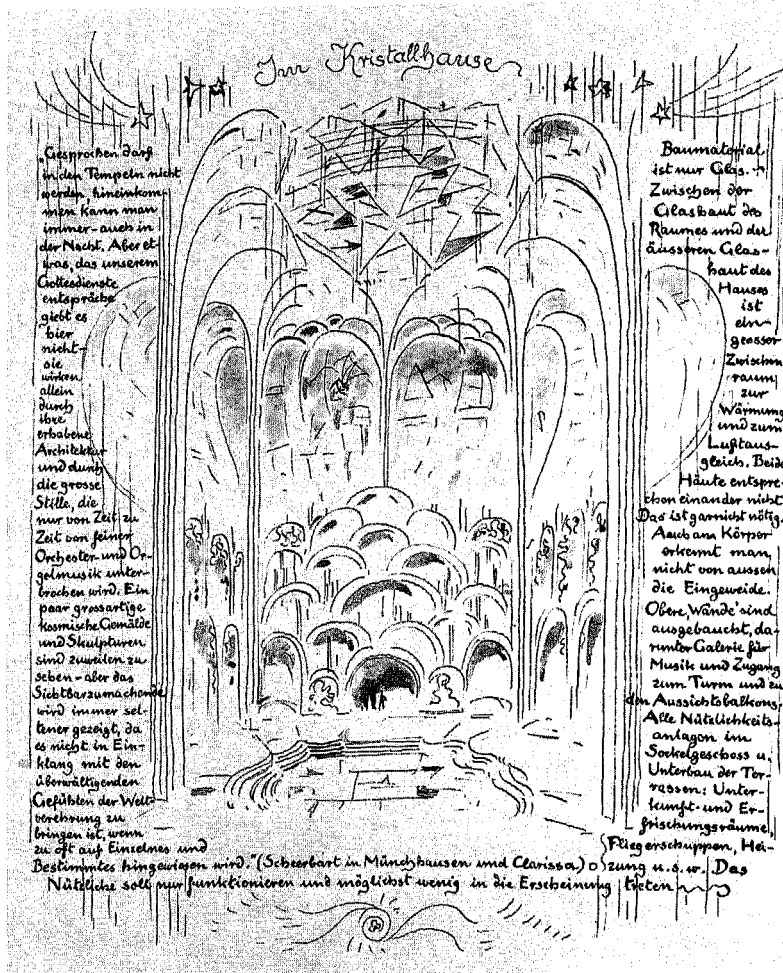 Im Kristallhause
„Gesprochen darf
in den Tempeln nicht
werden, hineinkom-
men kann man
immer - auch in
der Nacht. Aber et-
was, das unserem
Gottesdienste
entspräche
giebt es
hier
nicht -
sie
wirken
allein
durch
ihre
erhabene
Architektur
und durch
die grosse
Stille, die
nur von Zeit zu
Zeit von feiner
Orchester- und Or-
gelmusik unter-
brochen wird. Ein
paar grossartige
kosmische Gemälde
und Skulpturen
sind zuweilen zu
sehen - aber das
Sichtbarzumachende
wird immer sel-
tener gezeigt, da
es nicht in Ein-
klang mit den
überwältigenden
Gefühlen der Welt-
verehrung zu
bringen ist, wenn
zu oft auf Einzelnes und
Bestimmtes hingewiesen wird." (Scheerbart in Münchhausen und Clarissa)
Baumaterial
ist nur Glas. -
Zwischen der
Glashaut des
Raumes und der
äusseren Glas-
haut des
Hauses
ist
ein
grosser
Zwischen
raum
zur
Wärmung
und zum
Luftaus-
gleich. Beide
Häute entspre-
chen einander nicht.
Das ist garnicht nötig.
Auch am Körper
erkennt man
nicht von aussen
die Eingeweide.
Obere ,Wände' sind
ausgebaucht, da-
runter Galerie für
Musik und Zugang
zum Turm und zu
den Aussichtsbalkons.
Alle Nützlichkeits-
anlagen im
Sockelgeschoss u.
Unterbau der Ter-
rassen: Unter-
kunft- und Er-
frischungsräume,
Fliegerschuppen, Hei-
zung u.s.w. Das
Nützliche soll nur funktionieren und möglichst wenig in die Erscheinung treten